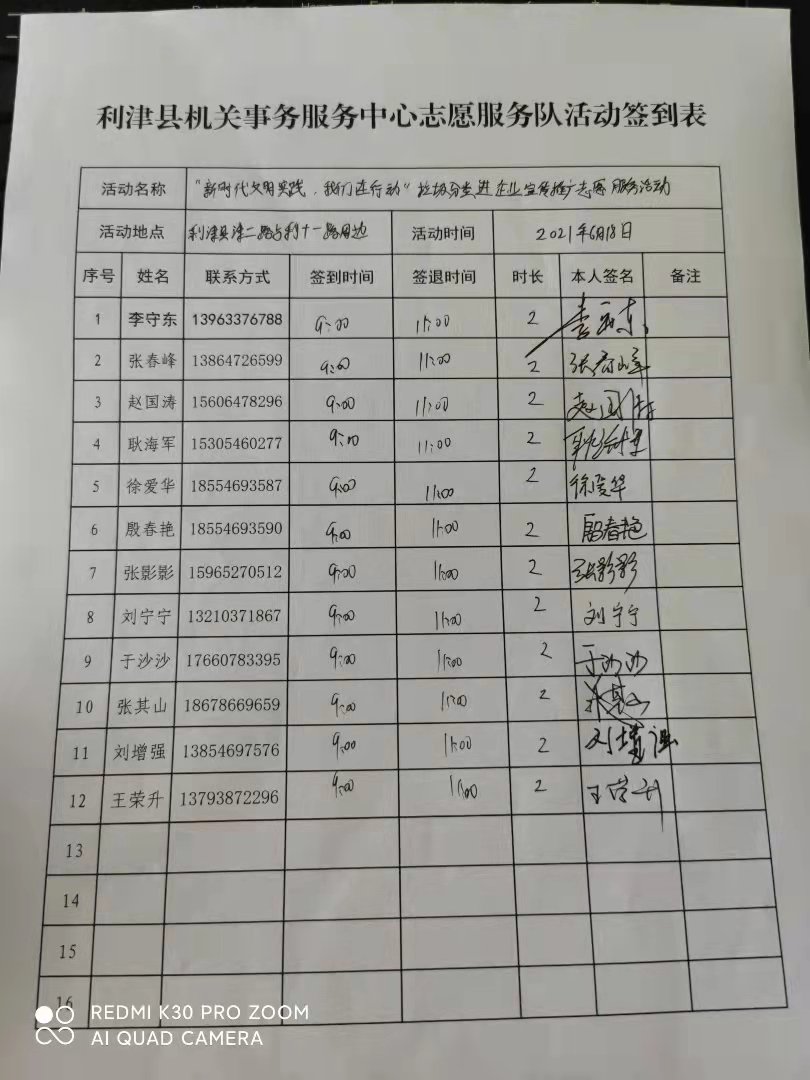 利津县机关事务服务中心志愿服务队活动签到表
活动名称 “新时代文明实践，我们在行动”垃圾分类进企业宣传推广志愿服务活动
活动地点 利津县津二路与利十一路周边 活动时间 2021年6月18日
序号 姓名 联系方式 签到时间 签退时间 时长 本人签名 备注
1 李守东 13963376788 9:00 11:00 2 李守东
2 张春峰 13864726599 9:00 11:00 2 张春峰
3 赵国涛 15606478296 9:00 11:00 2 赵国涛
4 耿海军 15305460277 9:00 11:00 2 耿海军
5 徐爱华 18554693587 9:00 11:00 2 徐爱华
6 殷春艳 18554693590 9:00 11:00 2 殷春艳
7 张影影 15965270512 9:00 11:00 2 张影影
8 刘宁宁 13210371867 9:00 11:00 2 刘宁宁
9 于沙沙 17660783395 9:00 11:00 2 于沙沙
10 张其山 18678669659 9:00 11:00 2 张其山
11 刘增强 13854697576 9:00 11:00 2 刘增强
12 王荣升 13793872296 9:00 11:00 2 王荣升
13
14
15
16
REDMI K30 PRO ZOOM
AI QUAD CAMERA